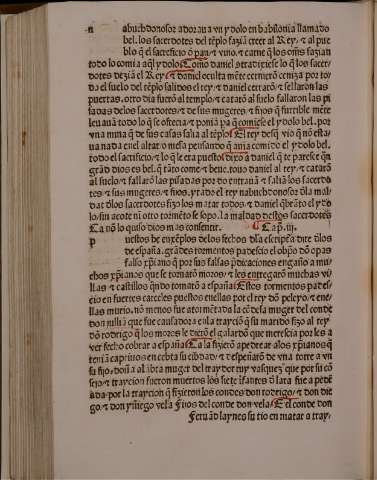 n abuchdonosor adoraua vn ydolo en babilonia llamado
bel. los sacerdotes del tẽplo faziã creer al Rey. ⁊ al pue
blo q̃ el sacreficio ð pan. ⁊ vino. ⁊ carne q̃ los om̃s fazian
todo lo comia aq̃l ydolo Como daniel
dotes deziã el Rey. ⁊ daniel oculta mẽte cerniero ceniza por to
da el suelo del tẽplo salidos el rey ⁊ daniel cerrarõ ⁊ sellaron las
puertas. otro dia fuerõ al templo. ⁊ catarõ al suelo fallaron las pi
sadas delos sacerdotes ⁊ de sus mugeres. ⁊ fijos que furtible mẽte
leuauã todo lo q̃ se ofrecia ⁊ poniã pa q̃ comiese el ydolo bel. por
vna mina q̃ de sus casas salia al tẽplo El rey desq̃ vio q̃ nõ esta
ua nada enel altar o mesa pensando q̃ auia comido el ydolo bel.
todo el sacrificio ⁊ lo q̃ le era puesto dixo a daniel q̃ te parescẽ q̃
grãd dios es bel. q̃ tãto come ⁊ beue. touo daniel al rey. ⁊ catarõ
al suelo ⁊ fallarõ las pisadas por do entrauã ⁊ saliã los sacerdo
tes ⁊ sus mugeres ⁊ fijos. yrado el rey nabuchdonosor dla mal
dat dlos sacerdotes fizo los matar todos. ⁊ daniel q̃brãto el ydo
lo. sin acote ni otro tormẽto se sopo. la maldad destos sacerdotes
Ca nõ lo quiso dios mas consentir. Cap. iij.
p uestos de exẽplos delos fechos dla escriptã dire dlos
de españa. grãdes tormentos padescio el obpõ dõ opas
falso xp̃iano q̃ por sus falsas pdicaciones engaño a mu
chos xp̃ianos que se tornarõ moros. ⁊ les entregarõ muchas vi
llas ⁊ castillos qñdo tomarõ a españa Estos tormentos pades
cio en fuertes carceles puestos enellas por el rey dõ pelayo. ⁊ ene
llas murio. nõ menos fue atormẽtada la cõdesa muger del conde
don iulliã que fue causadora enla traycio q̃ su marido fizo al rey
dõ rodrigo q̃ los moros le dierõ el galardõ que merescia por les a
ver fecho cobrar a españa Ca la fizierõ apedrear alos xp̃ianos q̃
teniã captiuos en cebta su cibdad. ⁊ despeñarõ de vna torre a vn
su fijo. doñã alãbra muger del traydor ruy vasquez que por su cõ
sejo ⁊ traycion fueron muertos los siete ifantes ð lara fue apedre
ada. por la traycion q̃ fizieron los condes don rodrigo. ⁊ don die
go. ⁊ don yñiego vela Fijos del conde don vela. El conde don
Ferrnãd laynes su tio en matar a tray.